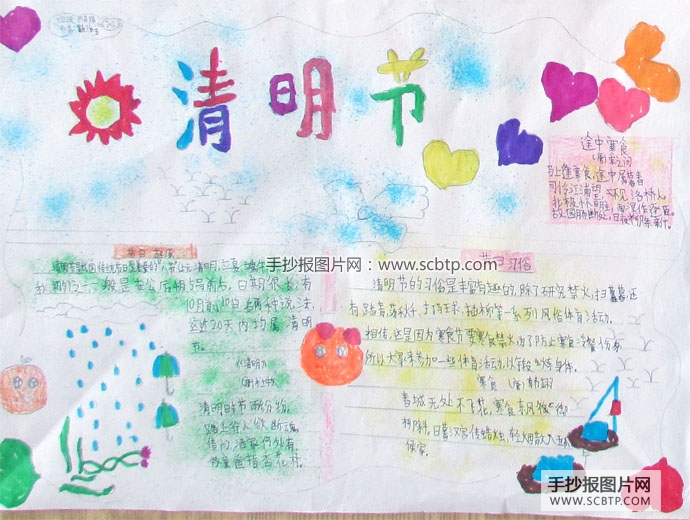 清明节
途中寒食
(唐)宋之问
马上逢寒食,途中属暮春
可怜江浦望,不见洛桥人
北极怀明主,南溟作逐臣
故园肠断处,日夜柳条新
节日习俗
清明节的习俗是丰富有趣的,除了研究禁火,扫墓,还
有踏青、荡秋千、打球、插柳等一系列风俗体育活动。
相传,这是因为寒食节要寒食禁火,为了防止寒食冷餐伤身,
所以大家来参加一些体育活动,以锻炼身体。
寒食 (唐)韩翃
春城无处不飞花,寒食东风御柳
斜,日暮汉宫传蜡烛,轻烟散入五
侯家。
10月前10日后两种说法,
这近20天内均属清明
节。
《清明》
清明时节雨纷纷,
路上行人欲断魂,
借问酒家何处有,
牧童遥指杏花村。
手抄报图片网:www.scbtp.com
手抄报图片网
WWW.SCBTP.COM
手抄报图片网
WWW.SCBTP.COM